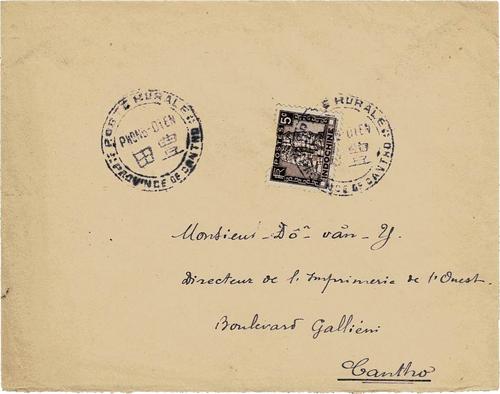 POSTE RURALE
PHONG-DIEN
PROVINCE DE CANTHO
POSTES 5c
RF INDOCHINE
E RURALE
DIEN
INCE DE CANTHO
Monsieur Đỗ văn Y.
Directeur de l'Imprimerie de l'Ouest
Boulevard Galliéni
Cantho